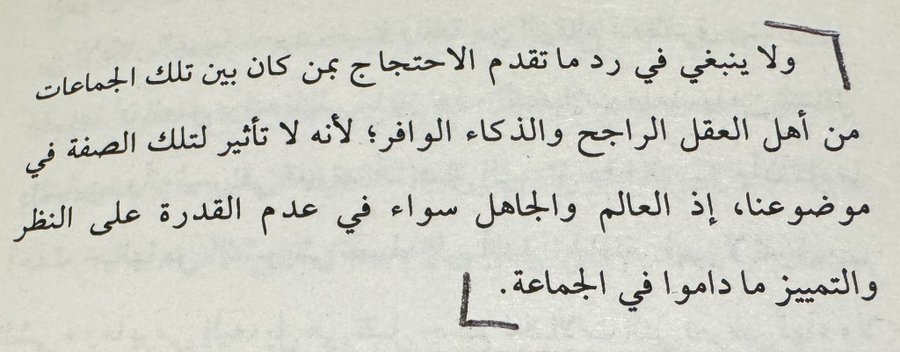 ولا ينبغي في رد ما تقدم الاحتجاج بمن كان بين تلك الجماعات
من أهل العقل الراجح والذكاء الوافر؛ لأنه لا تأثير لتلك الصفة في
موضوعنا، إذ العالم والجاهل سواء في عدم القدرة على النظر
والتمييز ما داموا في الجماعة.